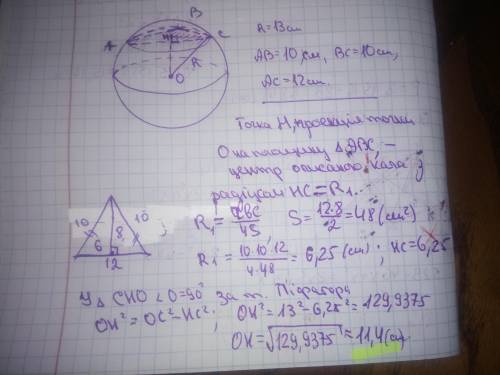 B
A
H
C
R
O
R=13см
AB=10 см, BC=10см,
AC=12см.
Точка H, проекція точки
O на площину △ABC, –
центр описаного кола з
радіусом HC=R₁.
10
10
8
6
12
R₁=abc/4S
S=12·8/2=48(см²)
R₁=10·10·12/4·48=6,25(см); HC=6,25
У △ CHO <O=90° За т. Піфагора
OH²=OC²-HC²; OH²=13²-6,25²=129,9375
OH=√129,9375≈11,4(см)